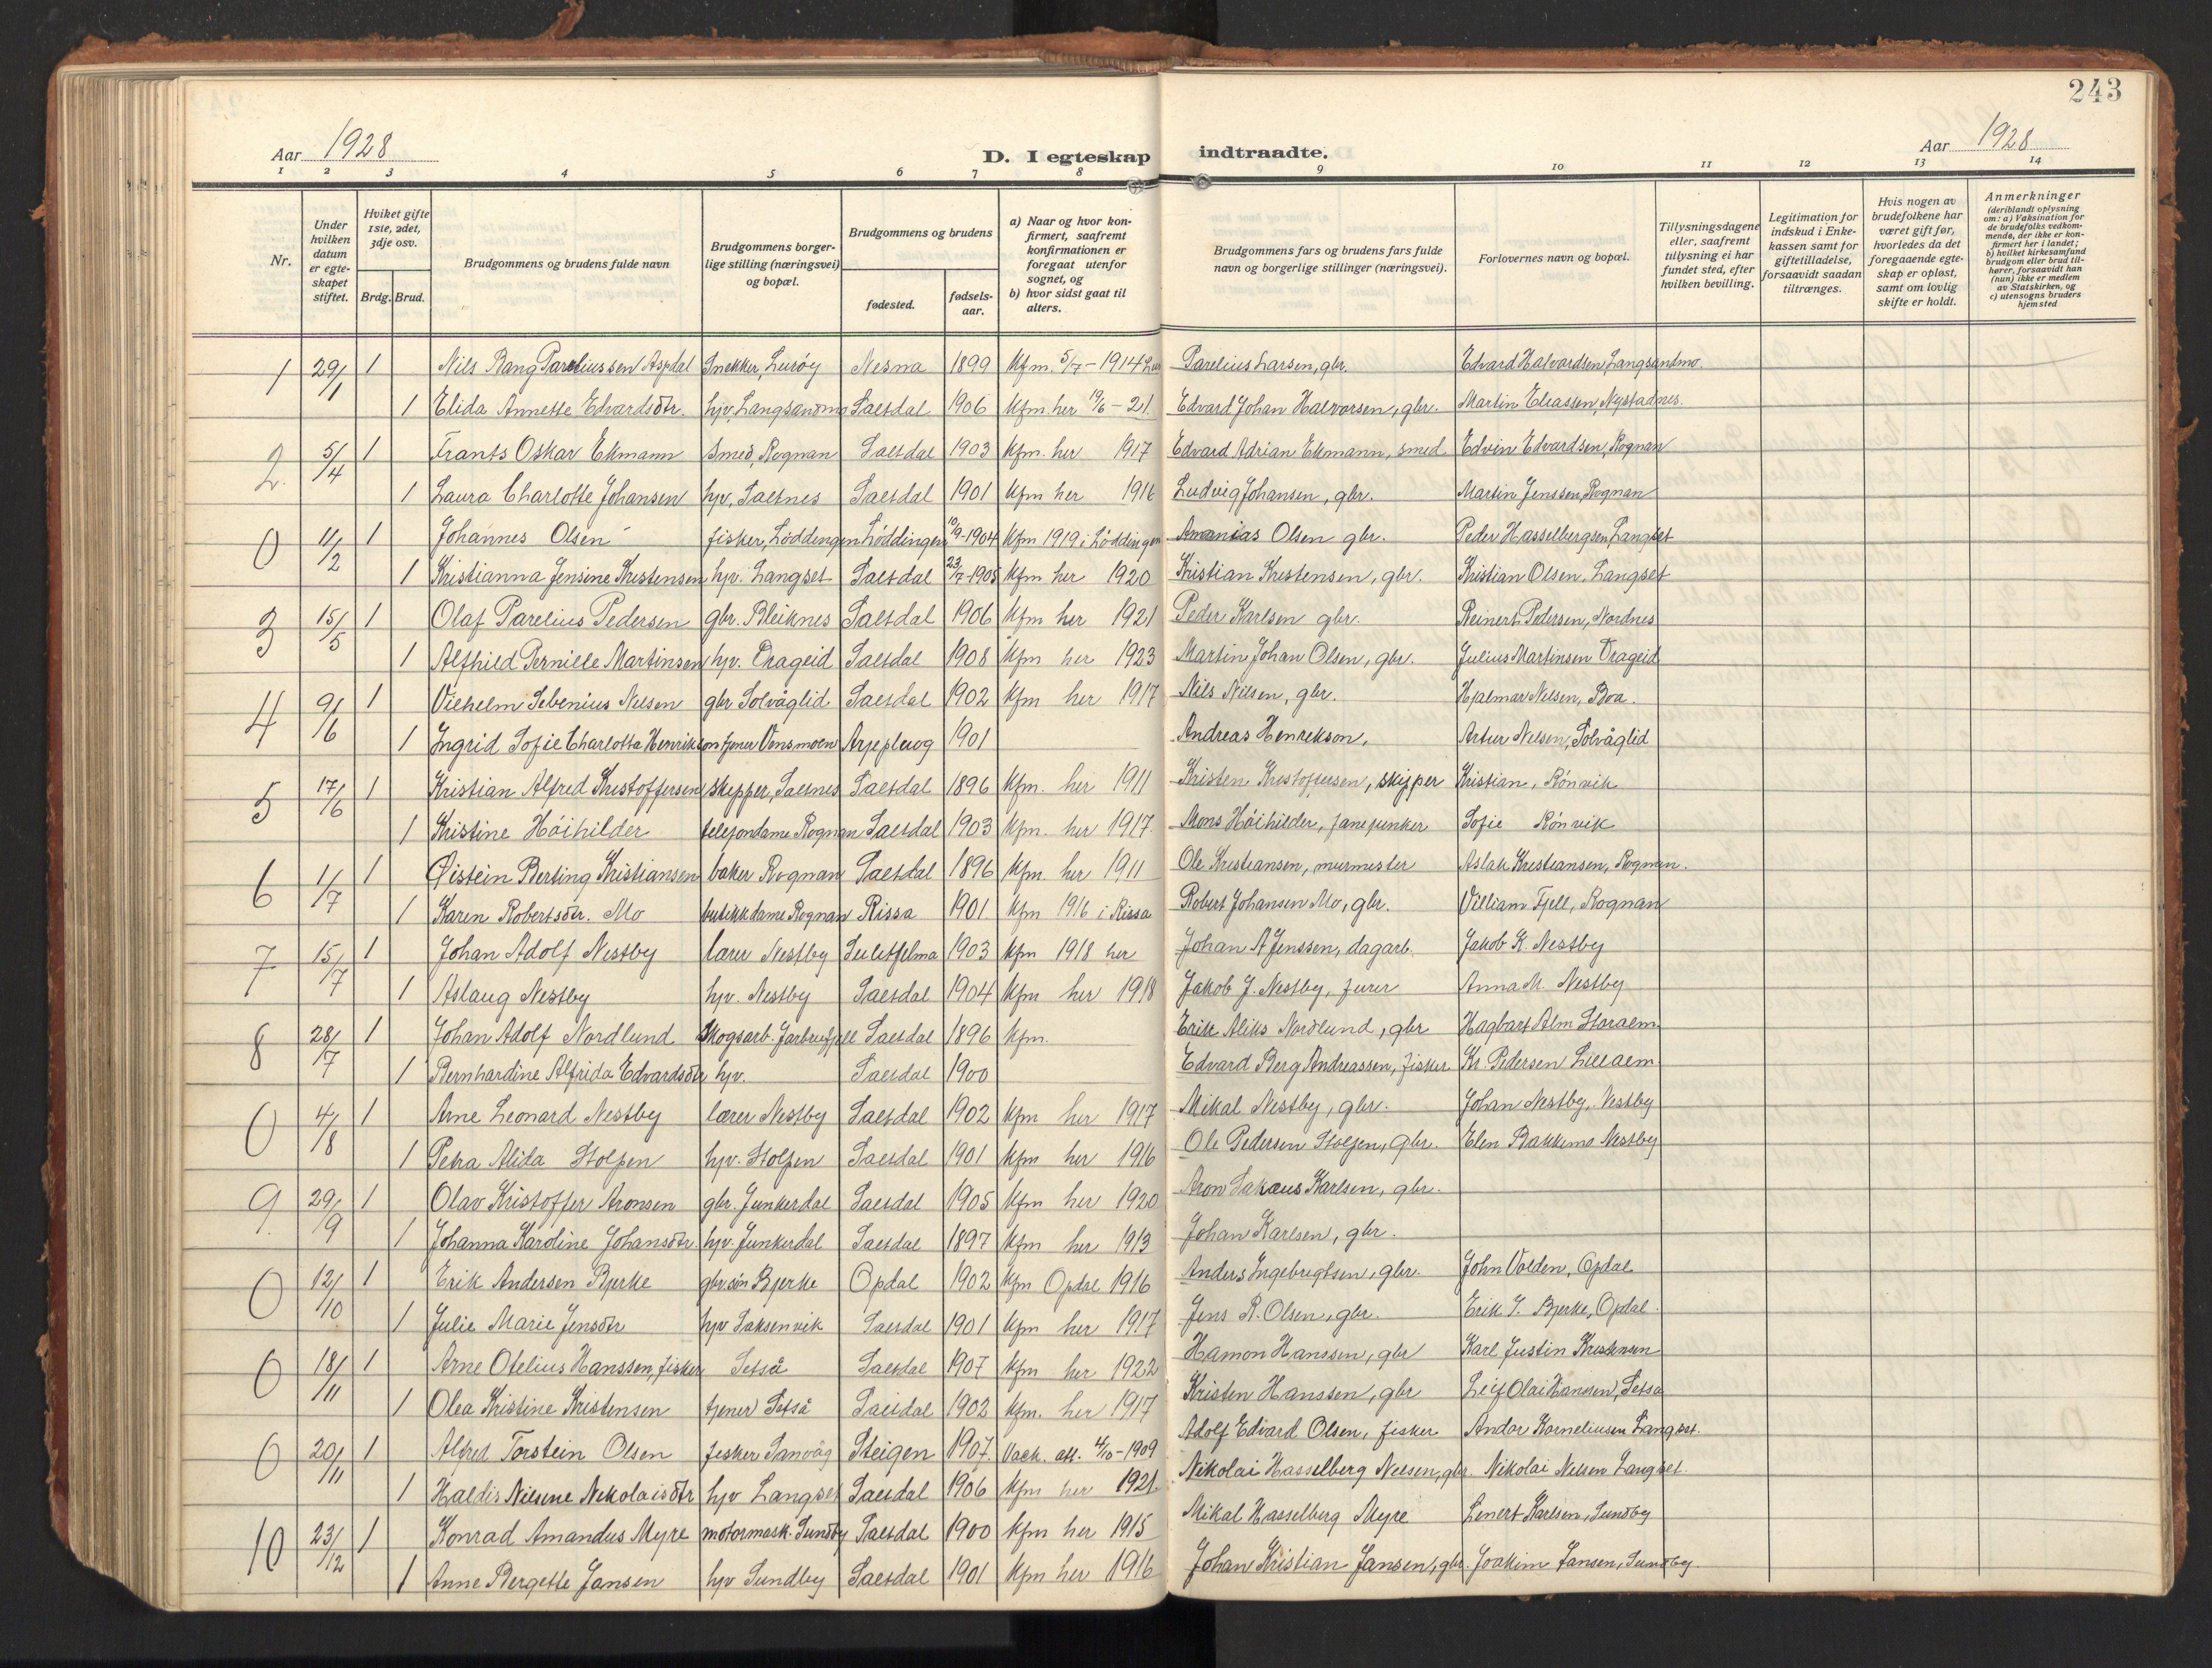 243
Aar 1928
D. I egteskap indtraadte.
Aar 1928
1 2 3 4 5 6 7 8 9 10 11 12 13 14
Nr.
Under hvilken datum er egteskapet stiftet.
Hviket gifte 1ste, 2det, 3dje osv.
Brdg. Brud.
Brudgommens og brudens fulde navn
Brudgommens borgerlige stilling (næringsvei) og bopæl.
Brudgommens og brudens
fødested.
fødselsaar.
a) Naar og hvor konfirmert, saafremt konfirmationen er foregaat utenfor sognet, og
b) hvor sidst gaat til alters.
Brudgommens fars og brudens fars fulde navn og borgerlige stillinger (næringsvei).
Forlovernes navn og bopæl.
Tillysningsdagene eller, saafremt tillysning ei har fundet sted, efter hvilken bevilling.
Legitimation for indskud i Enkekassen samt for giftetilladelse, forsaavidt saadan tiltrænges.
Hvis nogen av brudefolkene har været gift før, hvorledes da det foregaaende egteskap er opløst, samt om lovlig skifte er holdt.
Anmerkninger (deriblandt oplysning om: a) Vaksination for de brudefolks vedkommende, der ikke er konfirmert her i landet; b) hvilket kirkesamfund brudgom eller brud tilhører, forsaavidt han (hun) ikke er medlem av Statskirken, og c) utensogns bruders hjemsted
1 29/1 1 Nils Bang Pareliussen Aspdal Snekker, Lurøy Nesna 1899 Kfm. 5/7 - 1914 Lur Parelius Larsen, gbr. Edvard Halvardsen, Langsandmo.
1 Elida Annette Edvardsdtr. hjv. Langsandmo Saltdal 1906 Kfm. her 19/6 - 21 Edvard Johan Halvorsen, gbr. Martin Eliassen, Nystadnes.
2. 5/4 1 Frants Oskar Ekmann Smed, Rognan Saltdal 1903 Kfm. her 1917 Edvard Adrian Ekmann, smed Edvin Edvardsen, Rognan
1 Laura Charlotte Johansen hjv. Saltnes Saltdal 1901 Kfm her 1916 Ludvig Johansen, gbr. Martin Jenssen, Rognan
0 11/2 1 Johannes Olsen fisker, Løddingen Løddingen 10/9-1904 Kfm 1919 i Løddingen Amanias Olsen gbr. Peder Hasselbergsen, Langset
1 Kristianna Jensine Kristensen hjv. Langset Saltdal 23/7-1905 Kfm her 1920 Kristian Kristensen, gbr. Kristian Olsen, Langset
3 15/5 1 Olaf Parelius Pedersen gbr. Bleiknes Saltdal 1906 Kfm her 1921 Peder Karlsen gbr. Reinert Pedersen, Nordnes
1 Alfhild Pernille Martinsen hjv. Drageid Saltdal 1908 Kfm her 1923 Martin Johan Olsen, gbr. Julius Martinsen Drageid
4 9/6 1 Vilhelm Sebenius Nilsen gbr Solvåglid Saltdal 1902 Kfm her 1917 Nils Nilsen, gbr. Hjalmar Nilsen, Boa.
1 Ingrid Sofie Charlotta Henrikson tjener Vensmoen Arjeplog 1901 Andreas Henrikson, Artur Nilsen, Solvåglid
5 17/6 1 Kristian Alfred Kristoffersen skipper, Saltnes Saltdal 1896 Kfm. her 1911 Kristen Kristoffersen, skipper Kristian, Rønvik
1 Kristine Høihilder telefondame Rognan Saltdal 1903 Kfm. her 1917. Mons Høihilder, fanejunker Sofie Rønvik
6 1/7 1 Øistein Berting Kristiansen baker Rognan Saltdal 1896 Kfm. her 1911 Ole Kristiansen, murmester Aslak Kristiansen, Rognan.
1 Karen Robertsdtr. Mo butikkdame Rognan Rissa 1901 Kfm 1916 i Rissa Robert Johansen Mo, gbr. Villiam Fjell, Rognan
7 15/7 1 Johan Adolf Nestby lærer Nestby Sulitjelma 1903 Kfm 1918 her Johan A Jenssen, dagarb. Jakob K. Nestby
1 Aslaug Nestby hjv. Nestby Saltdal 1904 Kfm her 1918 Jakob J. Nestby, furer Anna M. Nestby
8 28/7 1 Johan Adolf Nordlund Skogsarb. Jarbrufjell Saltdal 1896 Kfm. Erik Aliks Nordlund, gbr Hagbart Alm Storalm
1 Bernhardine Alfrida Edvardsdtr hjv. Saltdal 1900 Edvard Berg Andreassen, fisker Kr. Pedersen Lillealm
0 4/8 1 Arne Leonard Nestby lærer Nestby Saltdal 1902 Kfm her 1917 Mikal Nestby, gbr. Johan Nestby, Nestby
1 Petra Alida Stolpen hjv. Stolpen Saltdal 1901 Kfm her 1916 Ole Pedersen Stolpen, gbr. Elen Bakkemo Nestby
9. 29/9 1 Olav Kristoffer Aronsen gbr. Junkerdal Saltdal 1905 Kfm her 1920 Aron Sakæus Karlsen, gbr.
1 Johanna Karoline Johansdtr. hjv. Junkerdal Saltdal 1897 Kfm her 1913 Johan Karlsen, gbr.
0 12/10 1 Erik Andersen Bjerke gbr.søn Bjerke Opdal 1902 Kfm Opdal 1916 Anders Ingebrigtsen, gbr. John Volden, Opdal
1 Julie Marie Jensdtr hjv Saksenvik Saltdal 1901 Kfm her 1917 Jens R. Olsen, gbr. Erik J. Bjerke, Opdal.
0 18/11 1 Arne Otelius Hanssen, fisker Setså Saltdal 1907 Kfm her 1922 Hamon Hanssen, gbr Karl Justin Kristensen
1 Olea Kristine Kristensen tjener Setså Saltdal 1902 Kfm. her 1917 Kristen Hanssen, gbr Leif Olai Hansen, Setså
0 20/11 1 Alfred Torstein Olsen fisker Sanvåg Steigen 1907. Vack. att. 4/10-1909 Adolf Edvard Olsen, fisker Andor Korneliusen Langset.
1 Haldis Nilsine Nikolaisdtr hjv Langset Saltdal 1906 Kfm her 1921. Nikolai Hasselberg Nilsen, gbr. Nikolai Nilsen Langset.
10 23/12 1 Konrad Amandus Myre motormask. Sundby Saltdal 1900 Kfm her 1915 Mikal Hasselberg Myre Lenert Karlsen, Sundby
1 Anne Bergette Jansen hjv Sundby Saltdal 1901 Kfm her 1916 Johan Kristian Jansen, gbr. Joakim Jansen, Sundby.